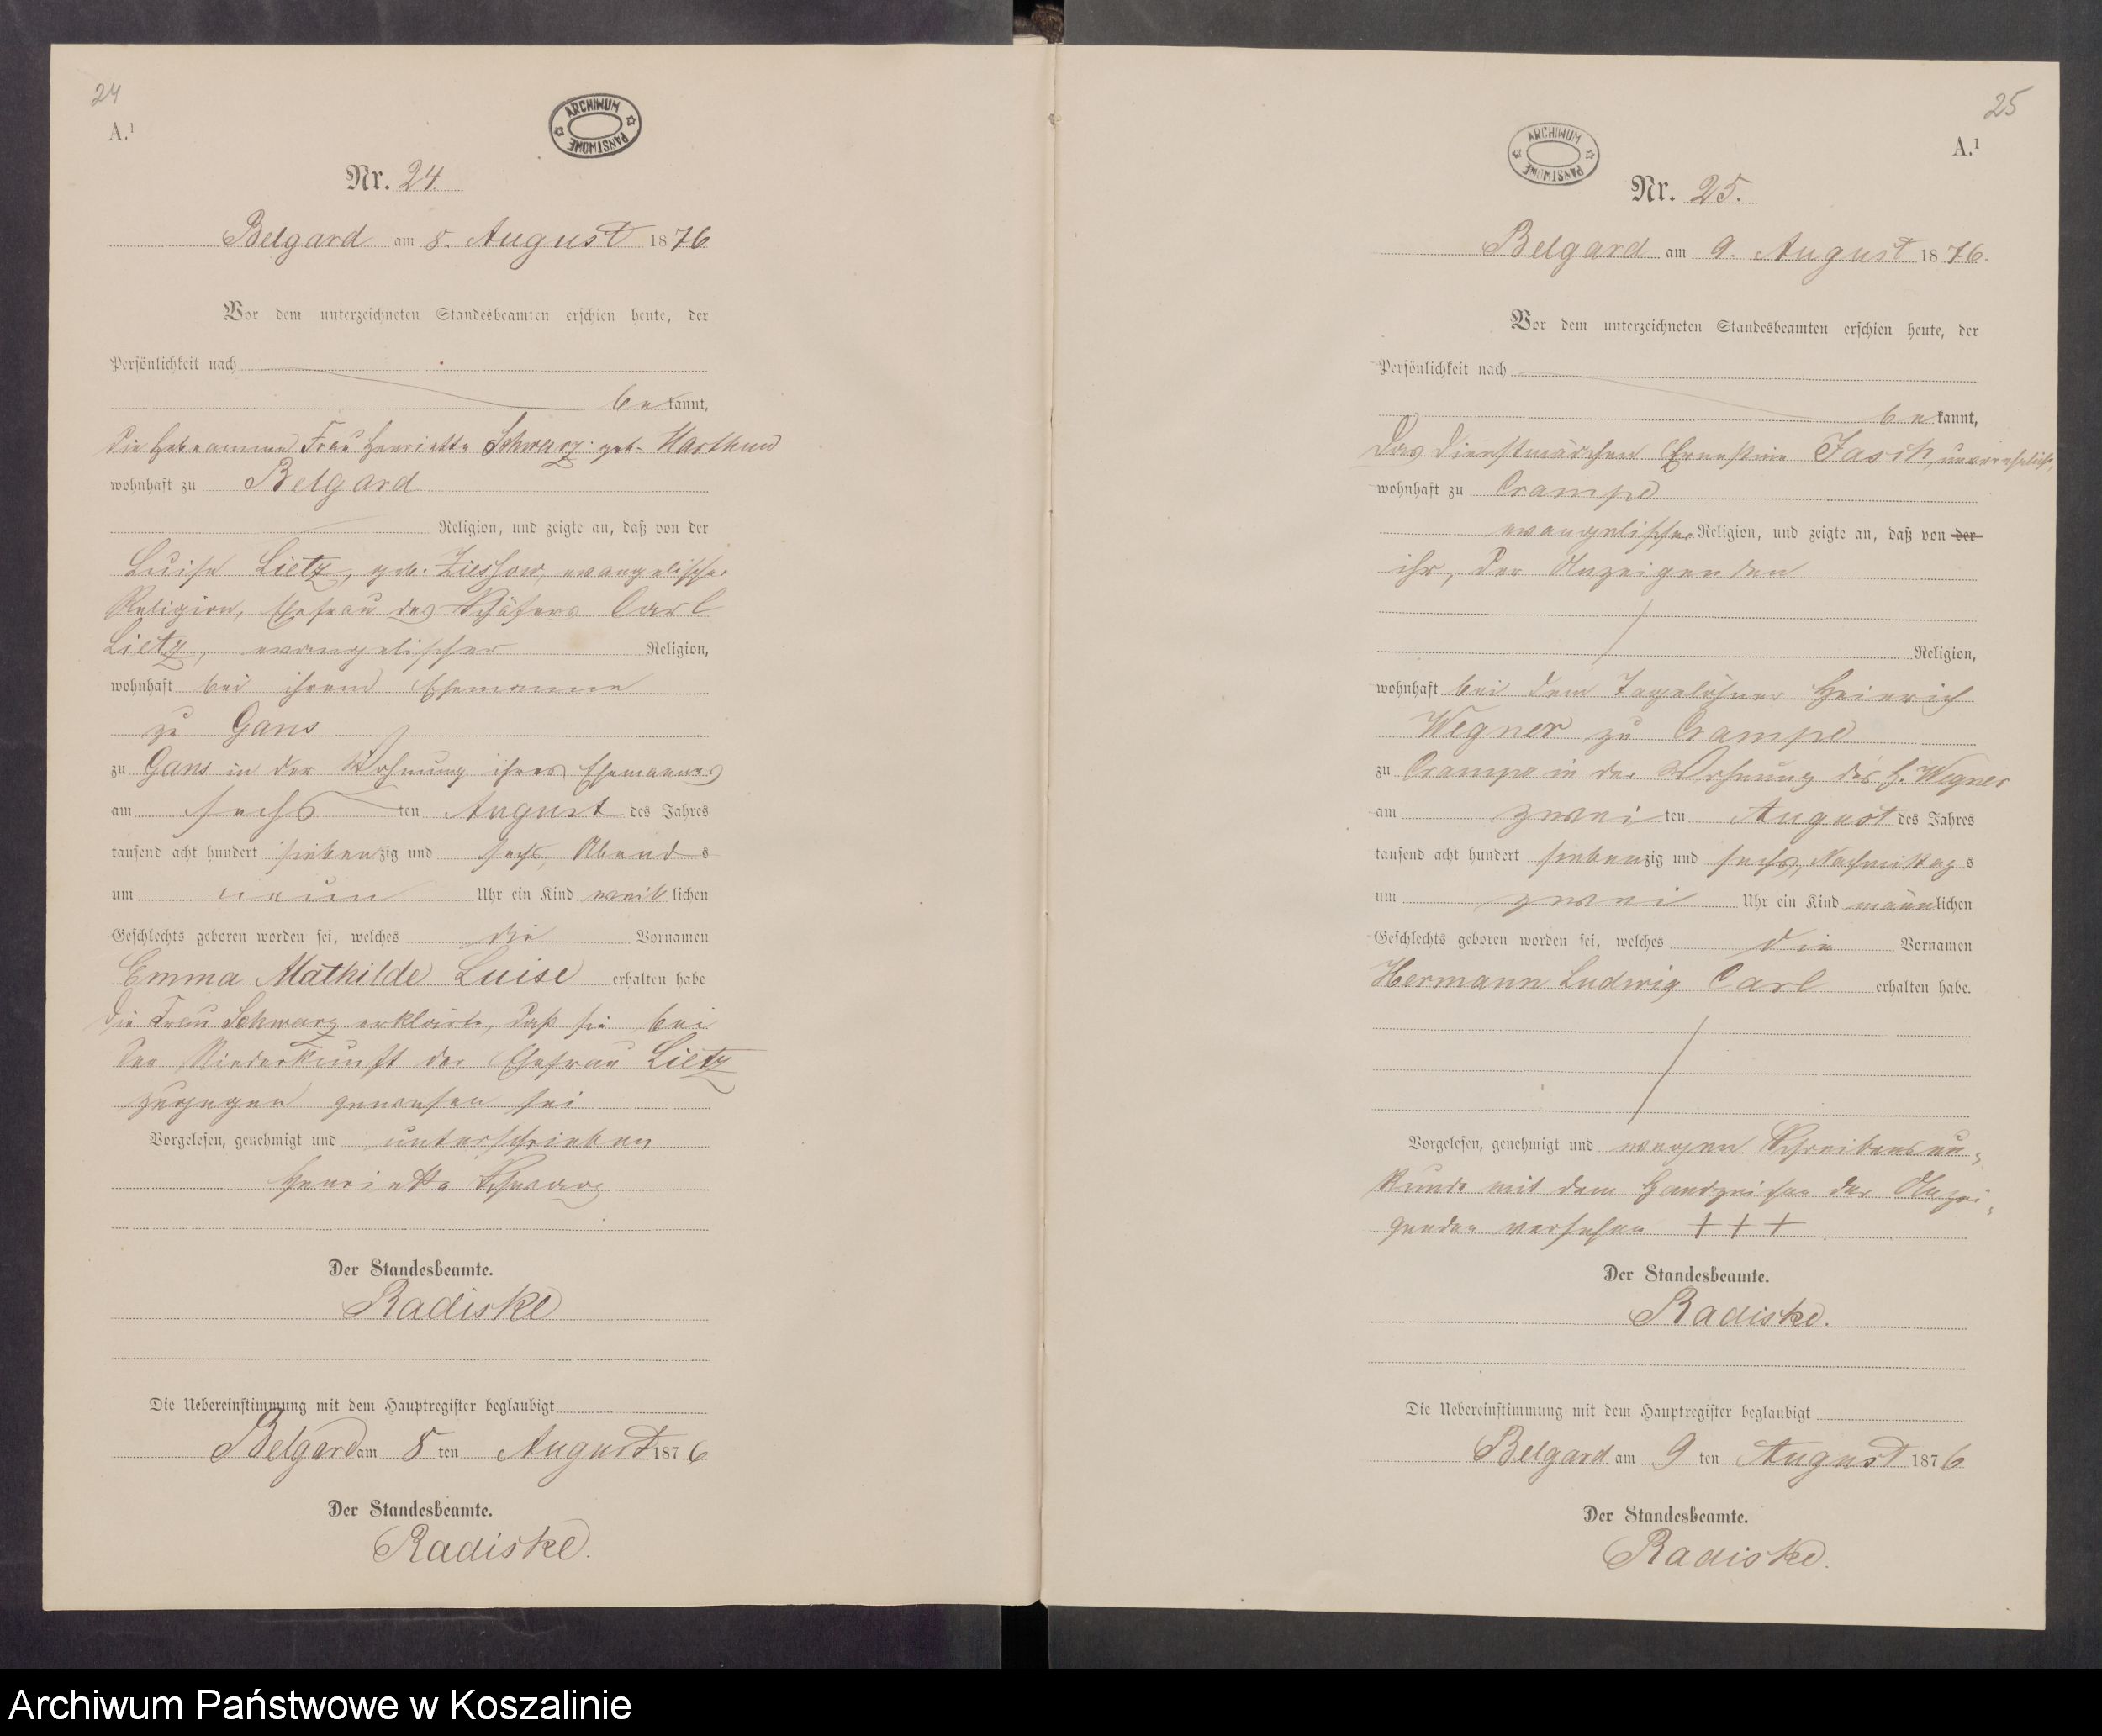 24
A.¹
ARCHIWUM PAŃSTWOWE
Nr. 24
Belgard am 8. August 1876
Vor dem unterzeichneten Standesbeamten erschien heute, der
Persönlichkeit nach
bekannt,
die Hebeamme Frau Henriette Schwarz geb. Harthun
wohnhaft zu Belgard
Religion, und zeigte an, daß von der
Luise Lietz, geb. Ziessow, evangelischer
Religion, Ehefrau des Schäfers Carl
Lietz, evangelischer Religion,
wohnhaft bei ihrem Ehemanne
zu Gans
zu Gans in der Wohnung ihres Ehemannes
am sechsten August des Jahres
tausend acht hundert siebenzig und sechs, Abends
um neun Uhr ein Kind weiblichen
Geschlechts geboren worden sei, welches die Vornamen
Emma Mathilde Luise erhalten habe
Die Frau Schwarz erklärte, daß sie bei
der Niederkunft der Ehefrau Lietz
zugegen gewesen sei
Vorgelesen, genehmigt und unterschrieben
Henriette Schwarz
Der Standesbeamte.
Radiske
Die Uebereinstimmung mit dem Hauptregister beglaubigt
Belgard am 8 ten August 1876
Der Standesbeamte.
Radiske.
25
A.¹
ARCHIWUM PAŃSTWOWE
Nr. 25.
Belgard am 9. August 1876.
Vor dem unterzeichneten Standesbeamten erschien heute, der
Persönlichkeit nach
bekannt,
Das Dienstmädchen Ernestine Jasch, unverehelicht,
wohnhaft zu Crampe
evangelischer Religion, und zeigte an, daß von der
ihr, der Anzeigenden
Religion,
wohnhaft bei dem Tagelöhner Heinrich
Wegner zu Crampe
zu Crampe in der Wohnung des H. Wegner
am zweiten August des Jahres
tausend acht hundert siebenzig und sechs, Nachmittags
um zwei Uhr ein Kind männlichen
Geschlechts geboren worden sei, welches die Vornamen
Hermann Ludwig Carl erhalten habe.
Vorgelesen, genehmigt und wegen Schreibensun-
kunde mit dem Handzeichen der Anzei-
genden versehen +++
Der Standesbeamte.
Radiske.
Die Uebereinstimmung mit dem Hauptregister beglaubigt
Belgard am 9 ten August 1876
Der Standesbeamte.
Radiske.
Archiwum Państwowe w Koszalinie